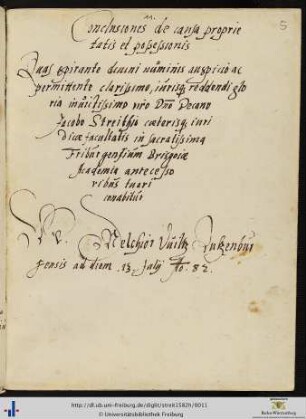 M.
5
Conclusiones de causa proprie
tatis et possessionis
Quas spirante divini numinis auspitio ac
permittente clarissimo, iurisq, reddendi glo
ria invictissimo viro Dno Decano
Jacobo Streithio caeterisq, iuri
dicae facultatis in sacratissima
Friburgensium Brisgoiae
Academia antecesso
ribus tueri
conabitur
Melchior
gensis ad diem .13. Julij Ao. 82.
http://dl.ub.uni-freiburg.de/diglit/streit1582h/0011
© Universitätsbibliothek Freiburg
Baden-Württemberg